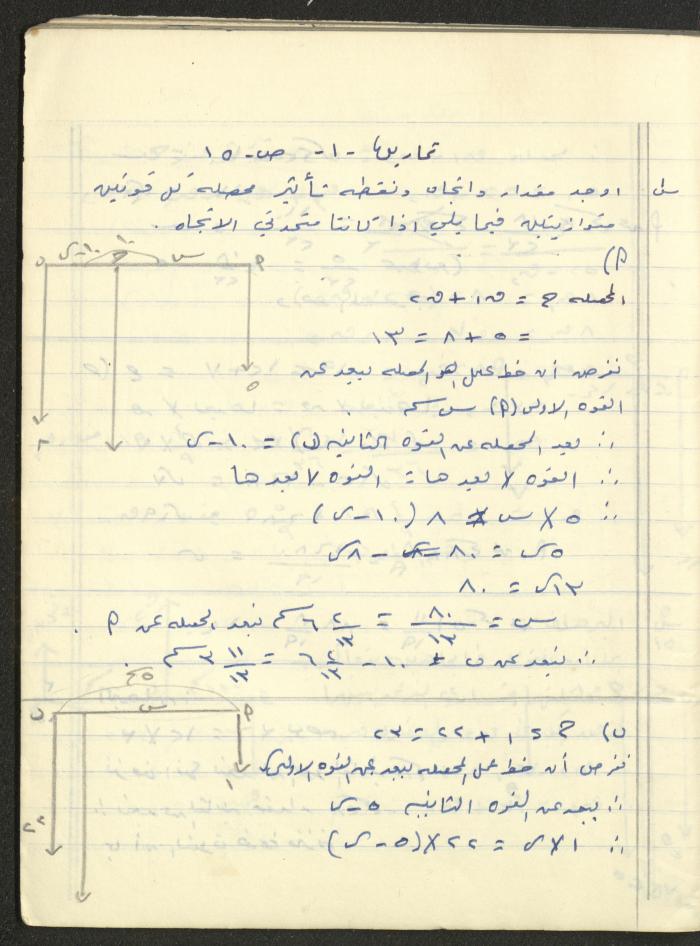 تمارين -١- ص- ١٥
س١ اوجد مقدار واتجاه ونقطه تأثير محصله كل قوتين
متوازيتين فيما يلي اذا كانتا متحدتي الاتجاه .
(أ
المحصله ح = ق١ + ق٢
= ٥ + ٨ = ١٣
نفرض أن خط عمل المحصله يبعد عن
القوه الاولى (أ) س سم
∴ بعد المحصله عن القوه الثانيه (ب) = ١٠ - س
∴ القوه × بعدها = القوه × بعدها
∴ ٥ × س = ٨ (١٠ - س)
٥س = ٨٠ - ٨س
١٣س = ٨٠
س = ٨٠/١٣ = ٦ ٢/١٣ سم تبعد المحصله عن أ .
∴ تبعد عن ب = ١٠ - ٦ ٢/١٣ = ٣ ١١/١٣ سم .
ب) ح = ١ + ٢٢ = ٢٣
نفرض أن خط عمل المحصله يبعد عن القوه الاولى س
∴ يبعد عن القوه الثانيه ٥ - س
∴ ١ × س = ٢٢ × (٥ - س)
ب ١٠-س ١٠ س أ
٥
٨
٥سم
ب س أ
١
٢٢